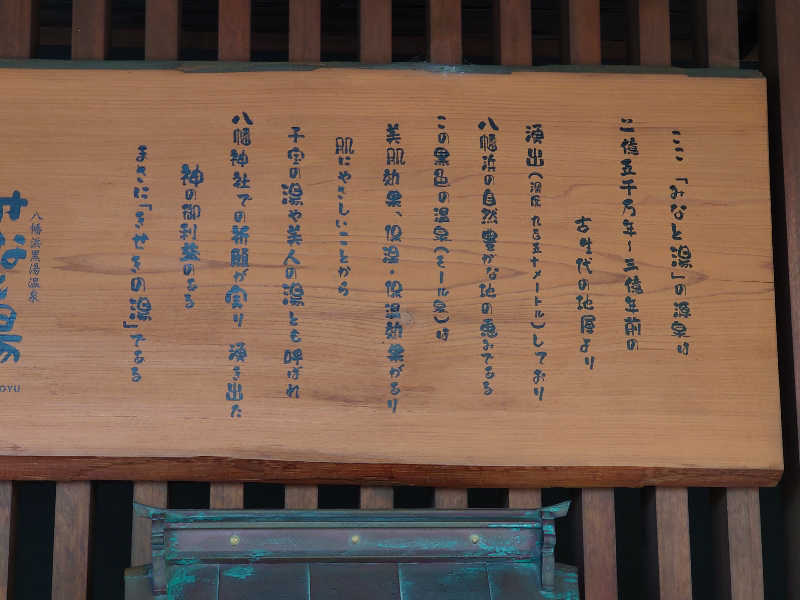 ここ「みなと湯」の源泉は
二億五千万年〜三億年前の
古生代の地層より
湧出(深度 九百五十メートル)しており
八幡浜の自然豊かな地の恵みである
この黒色の温泉(モール泉)は
美肌効果、保湿・保温効果があり
肌にやさしいことから
子宝の湯や美人の湯とも呼ばれ
八幡神社での祈願が実り 湧き出た
神の御利益のある
まさに「きせきの湯」である
八幡浜黒湯温泉
みなと湯
OYU